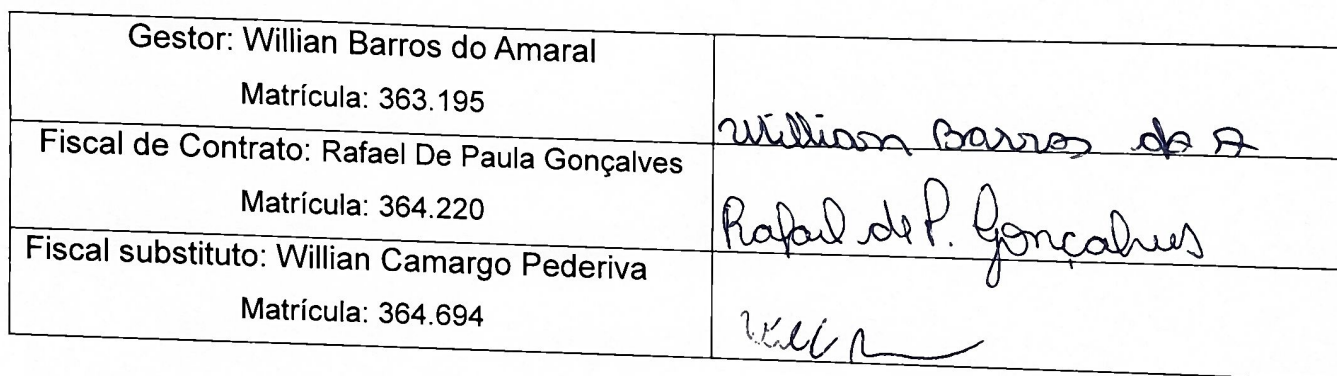 Gestor: Willian Barros do Amaral
Matrícula: 363.195
Willian Barros do A
Fiscal de Contrato: Rafael De Paula Gonçalves
Matrícula: 364.220
Rafael de P. Gonçalves
Fiscal substituto: Willian Camargo Pederiva
Matrícula: 364.694